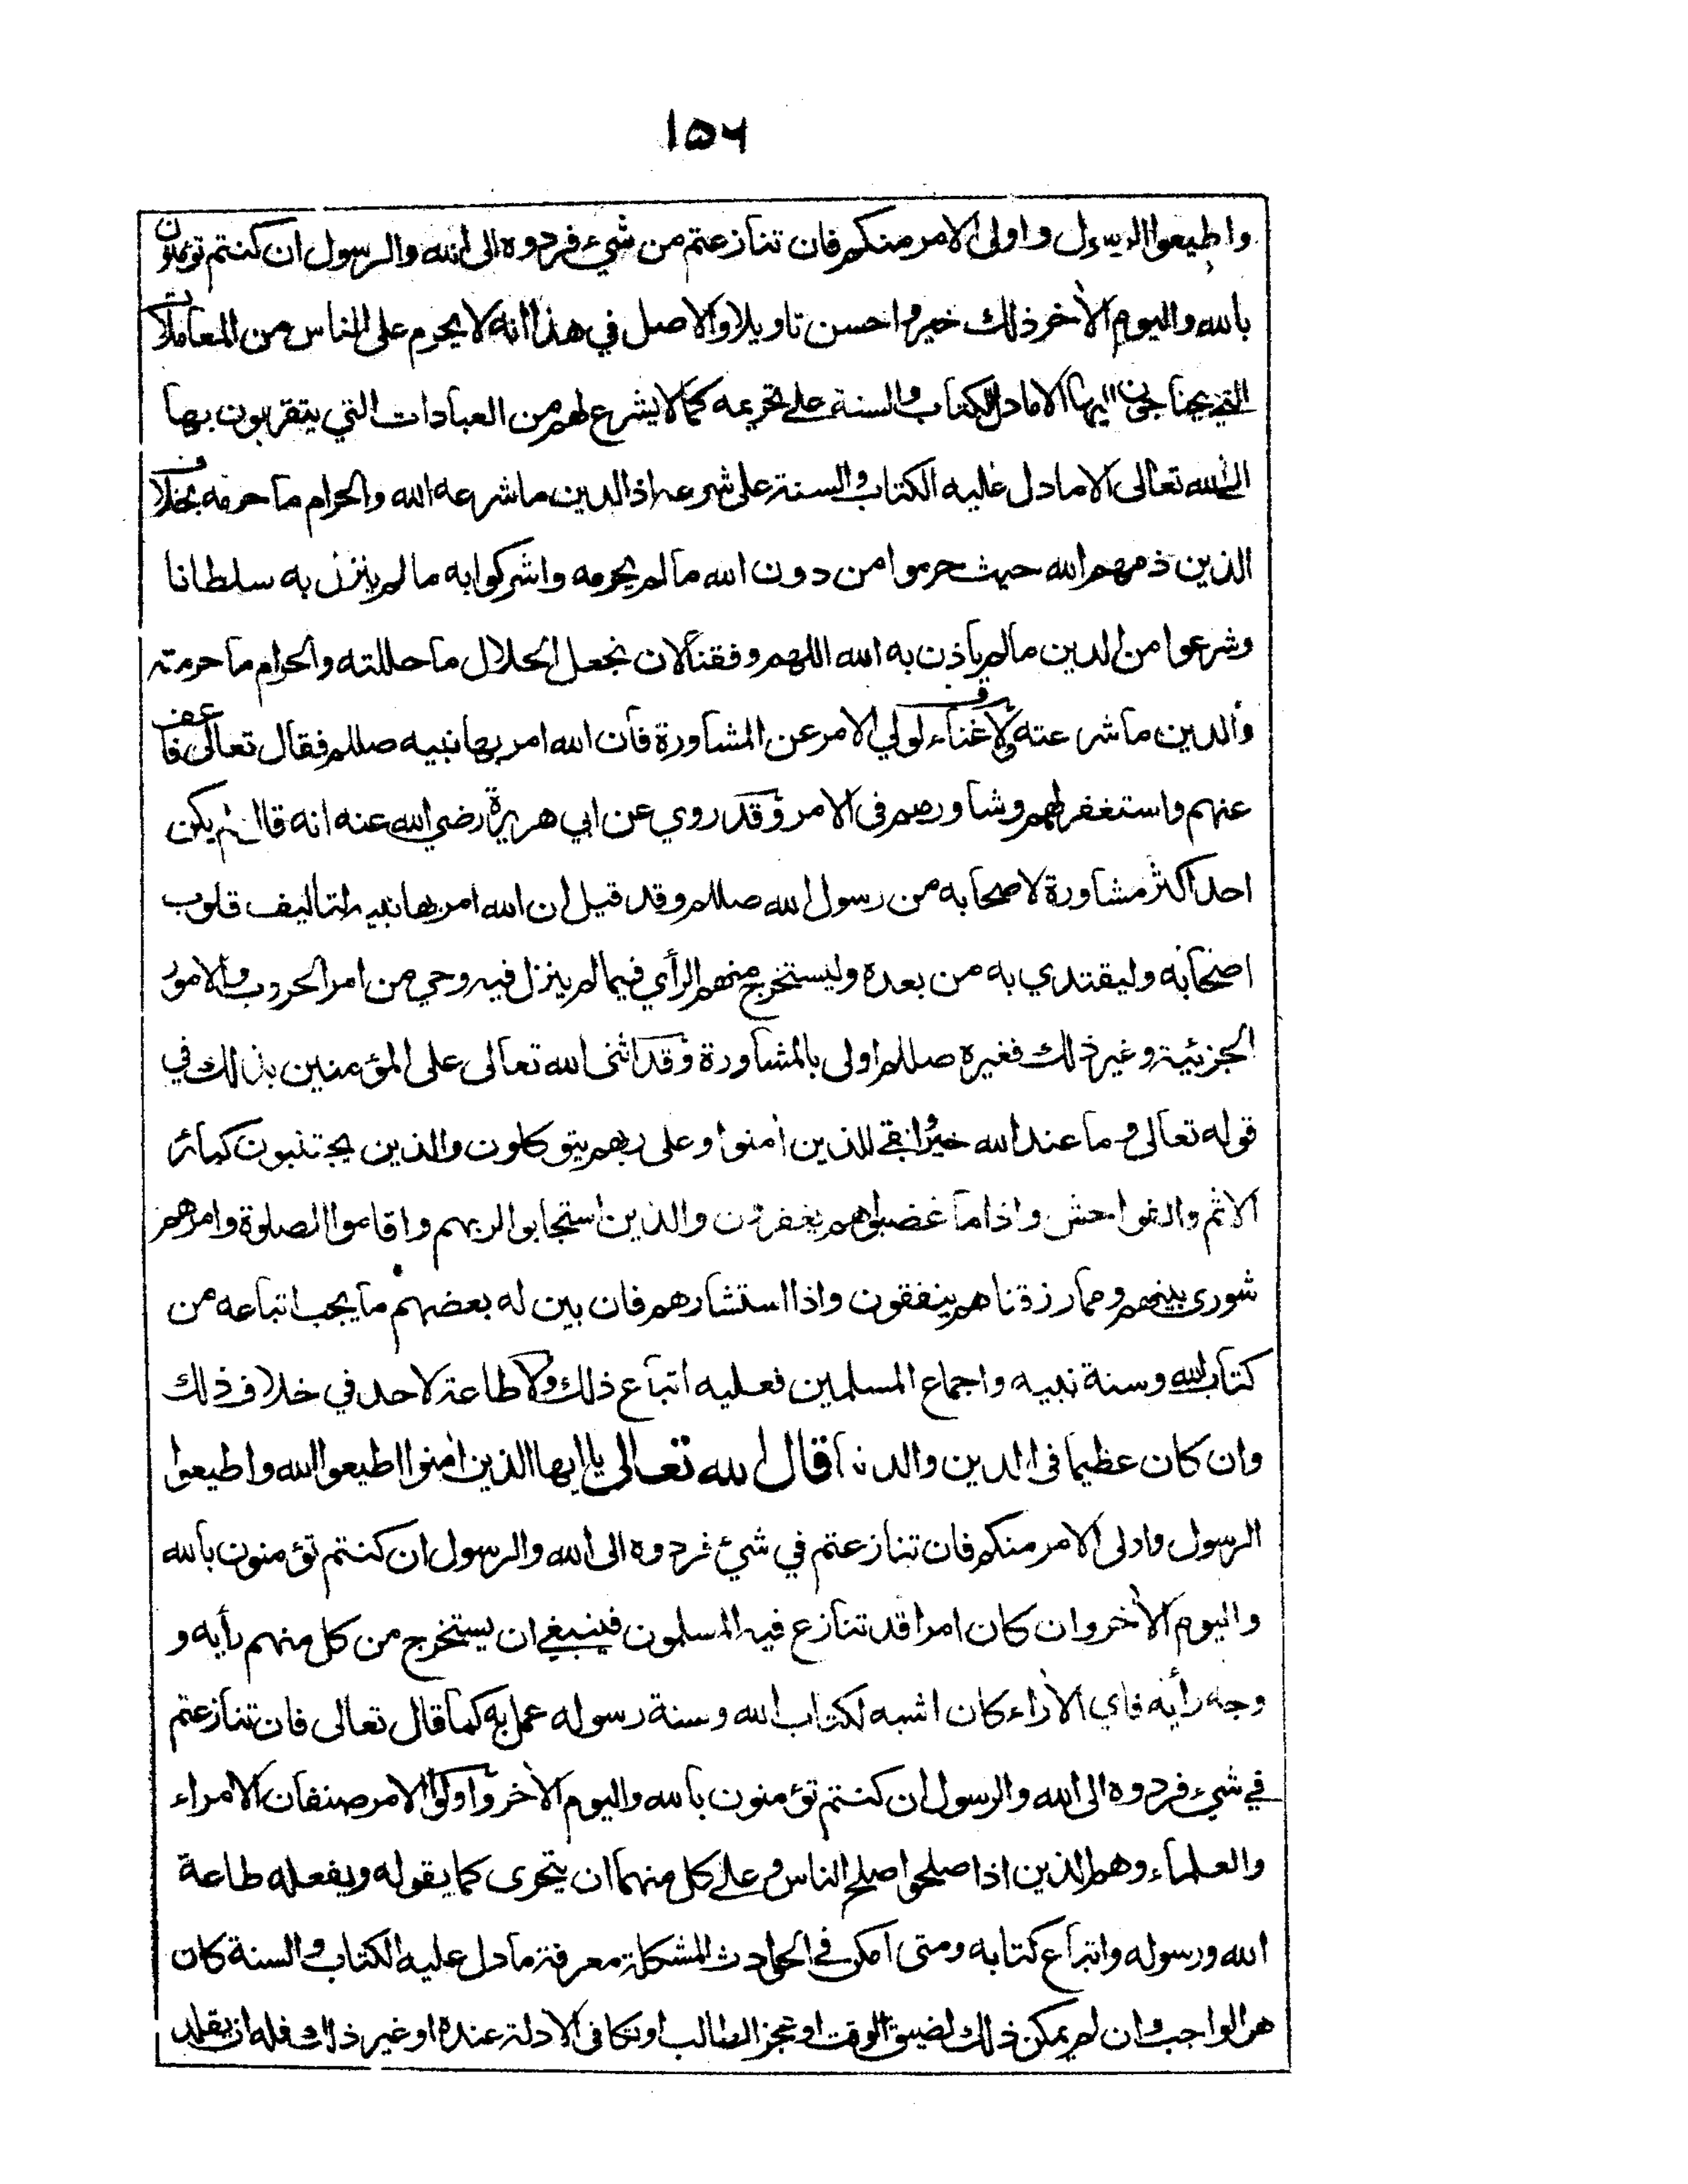 ١٥٦
واطيعوا الرسول واولى الامر منكم فان تنازعتم من شيء فردوه الى الله والرسول ان كنتم تؤمنون
بالله واليوم الأخر ذلك خير واحسن تاويلا والاصل في هذا انه لا يحرم على الناس من المعاملات
التي يحتاجون اليها الا ما دل الكتاب والسنة على تحريمه كما لا يشرع لهم من العبادات التي يتقربون بها
الى الله تعالى الا ما دل عليه الكتاب والسنة على شرعه اذ الدين ما شرعه الله والحرام ما حرمه بخلاف
الذين ذمهم الله حيث حرموا من دون الله ما لم يحرمه واشركوا به ما لم ينزل به سلطانا
وشرعوا من الدين ما لم ياذن به الله اللهم وفقنا لان نجعل الحلال ما حللته والحرام ما حرمته
والدين ما شرعته ولا غناء لولي الامر عن المشاورة فان الله امر بها نبيه صللم فقال تعالى فاعف
عنهم واستغفر لهم وشاورهم فى الامر وقد روي عن ابي هريرة رضي الله عنه انه قال لم يكن
احد اكثر مشاورة لاصحابه من رسول الله صللم وقد قيل ان الله امر بها نبيه لتاليف قلوب
اصحابه وليقتدي به من بعده وليستخرج منهم الرأي فيما لم ينزل فيه وحي من امر الحروب والامور
الجزئية وغير ذلك فغيره صللم اولى بالمشاورة وقد اثنى الله تعالى على المؤمنين بذلك في
قوله تعالى وما عند الله خير وابقى للذين أمنوا وعلى ربهم يتوكلون والذين يجتنبون كبائر
الاثم والفواحش واذا ما غضبوا هم يغفرون والذين استجابوا لربهم واقاموا الصلوة وامرهم
شورى بينهم ومما رزقناهم ينفقون واذا استشارهم فان بين له بعضهم ما يجب اتباعه من
كتاب الله وسنة نبيه واجماع المسلمين فعليه اتباع ذلك ولا طاعة لاحد في خلاف ذلك
وان كان عظيما فى الدين والدنيا قال الله تعالى يا ايها الذين أمنوا اطيعوا الله واطيعوا
الرسول واولى الامر منكم فان تنازعتم في شيء فردوه الى الله والرسول ان كنتم تؤمنون بالله
واليوم الأخر وان كان امرا قد تنازع فيه المسلمون فينبغي ان يستخرج من كل منهم رأيه و
وجه رأيه فاي الأراء كان اشبه لكتاب الله وسنة رسوله عمل به كما قال تعالى فان تنازعتم
في شيء فردوه الى الله والرسول ان كنتم تؤمنون بالله واليوم الأخر واولوا الامر صنفان الامراء
والعلماء وهم الذين اذا صلحوا صلح الناس وعلى كل منهما ان يتحرى كما يقوله ويفعله طاعة
الله ورسوله واتباع كتابه ومتى امكن في الحوادث المشكلة معرفة ما دل عليه الكتاب والسنة كان
هو الواجب وان لم يمكن ذلك لضيق الوقت او عجز الطالب او تكافى الادلة عنده او غير ذلك فله ان يقلد